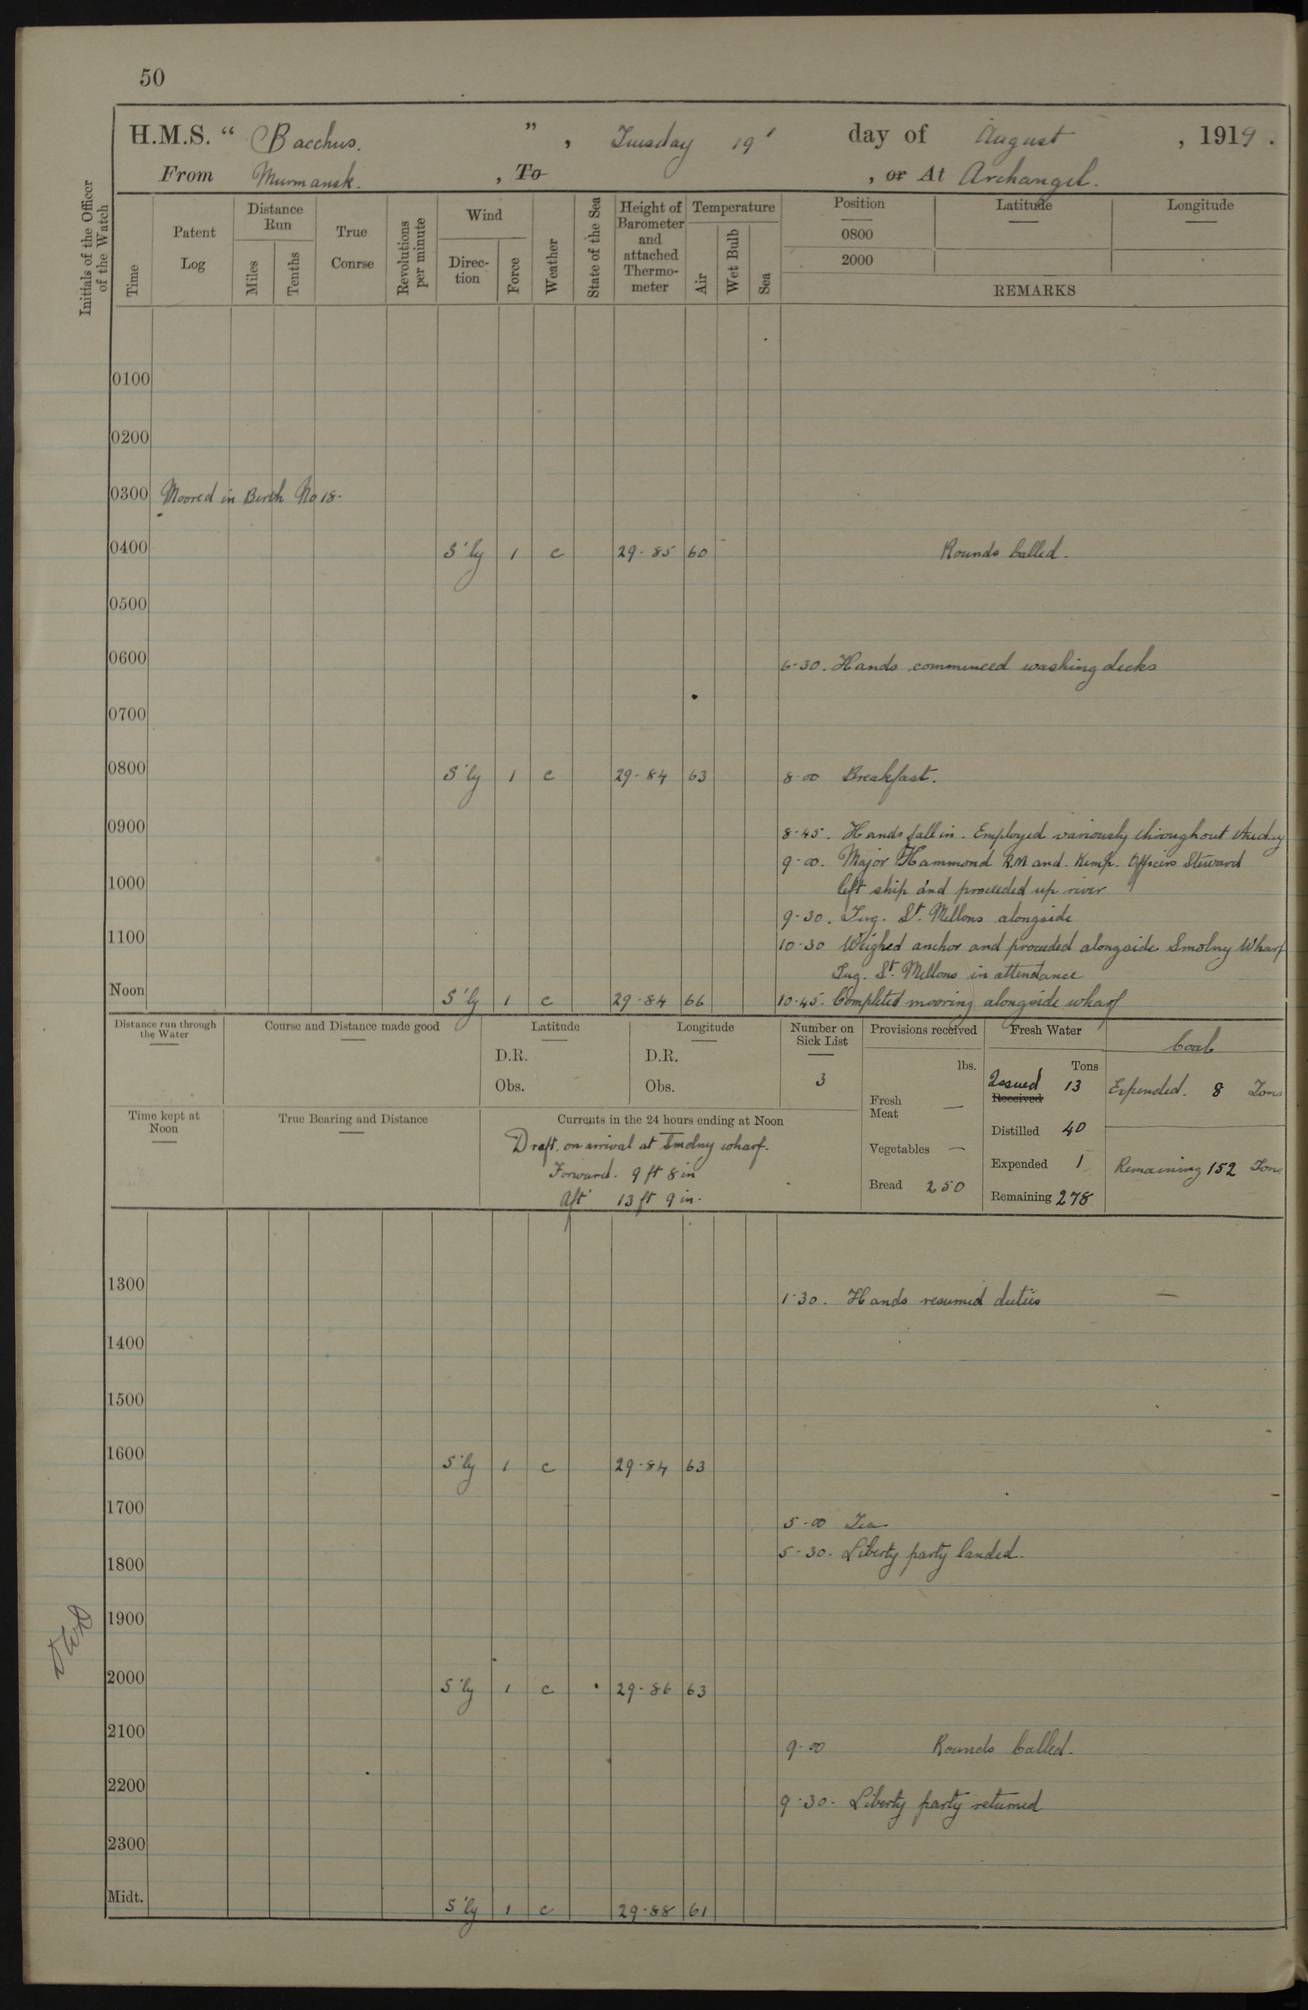 50
H.M.S. “ Bacchus. ” , Tuesday 19' day of August , 1919.
From Murmansk. , To , or At Archangel.
Initials of the Officer of the Watch
Time
Patent Log
Distance Run
Miles
Tenths
True Conrse
Revolutions per minute
Wind
Direc-tion
Force
Weather
State of the Sea
Height of Barometer and attached Thermo-meter
Temperature
Air
Wet Bulb
Sea
Position
0800
2000
Latitude
Longitude
REMARKS
0100
0200
0300 Moored in Berth No 18.
0400 S'ly 1 c 29-85 60 Rounds Called.
0500
0600
6-30. Hands commenced washing decks
0700
0800 S'ly 1 c 29-84 63 8-00 Breakfast.
0900
8-45. Hands fall in. Employed variously throughout
9-00. Major Hammond RM and Kemp. Officers Steward
1000 left ship and proceeded up river
9-30. Tug. St. Mellons alongside
1100 10-30 Weighed anchor and proceeded alongside Smolny Wharf
Tug. St. Mellons in attendance
Noon S'ly 1 c 29-84 66 10-45. Completed mooring alongside wharf
Distance run through the Water
Course and Distance made good
Latitude
D.R.
Obs.
Longitude
D.R.
Obs.
Number on Sick List
3
Provisions received
lbs.
Fresh Meat —
Vegetables —
Bread 250
Fresh Water
Tons
Issued 13
Received
Distilled 40
Expended 1
Remaining 278
Coal
Expended. 8 Tons
Remaining 152 Tons
Time kept at Noon
True Bearing and Distance
Currents in the 24 hours ending at Noon
Draft. on arrival at Smolny wharf.
Forward. 9 ft 8 in
Aft 13 ft 9 in.
1300 1-30. Hands resumed duties —
1400
1500
1600 S'ly 1 c 29-84 63
1700
5-00 Tea
5-30. Liberty party landed.
1800
1900
2000 S'ly 1 c 29-86 63
2100
9-00 Rounds Called.
2200 9-30. Liberty party returned
2300
Midt. S'ly 1 c 29-88 61